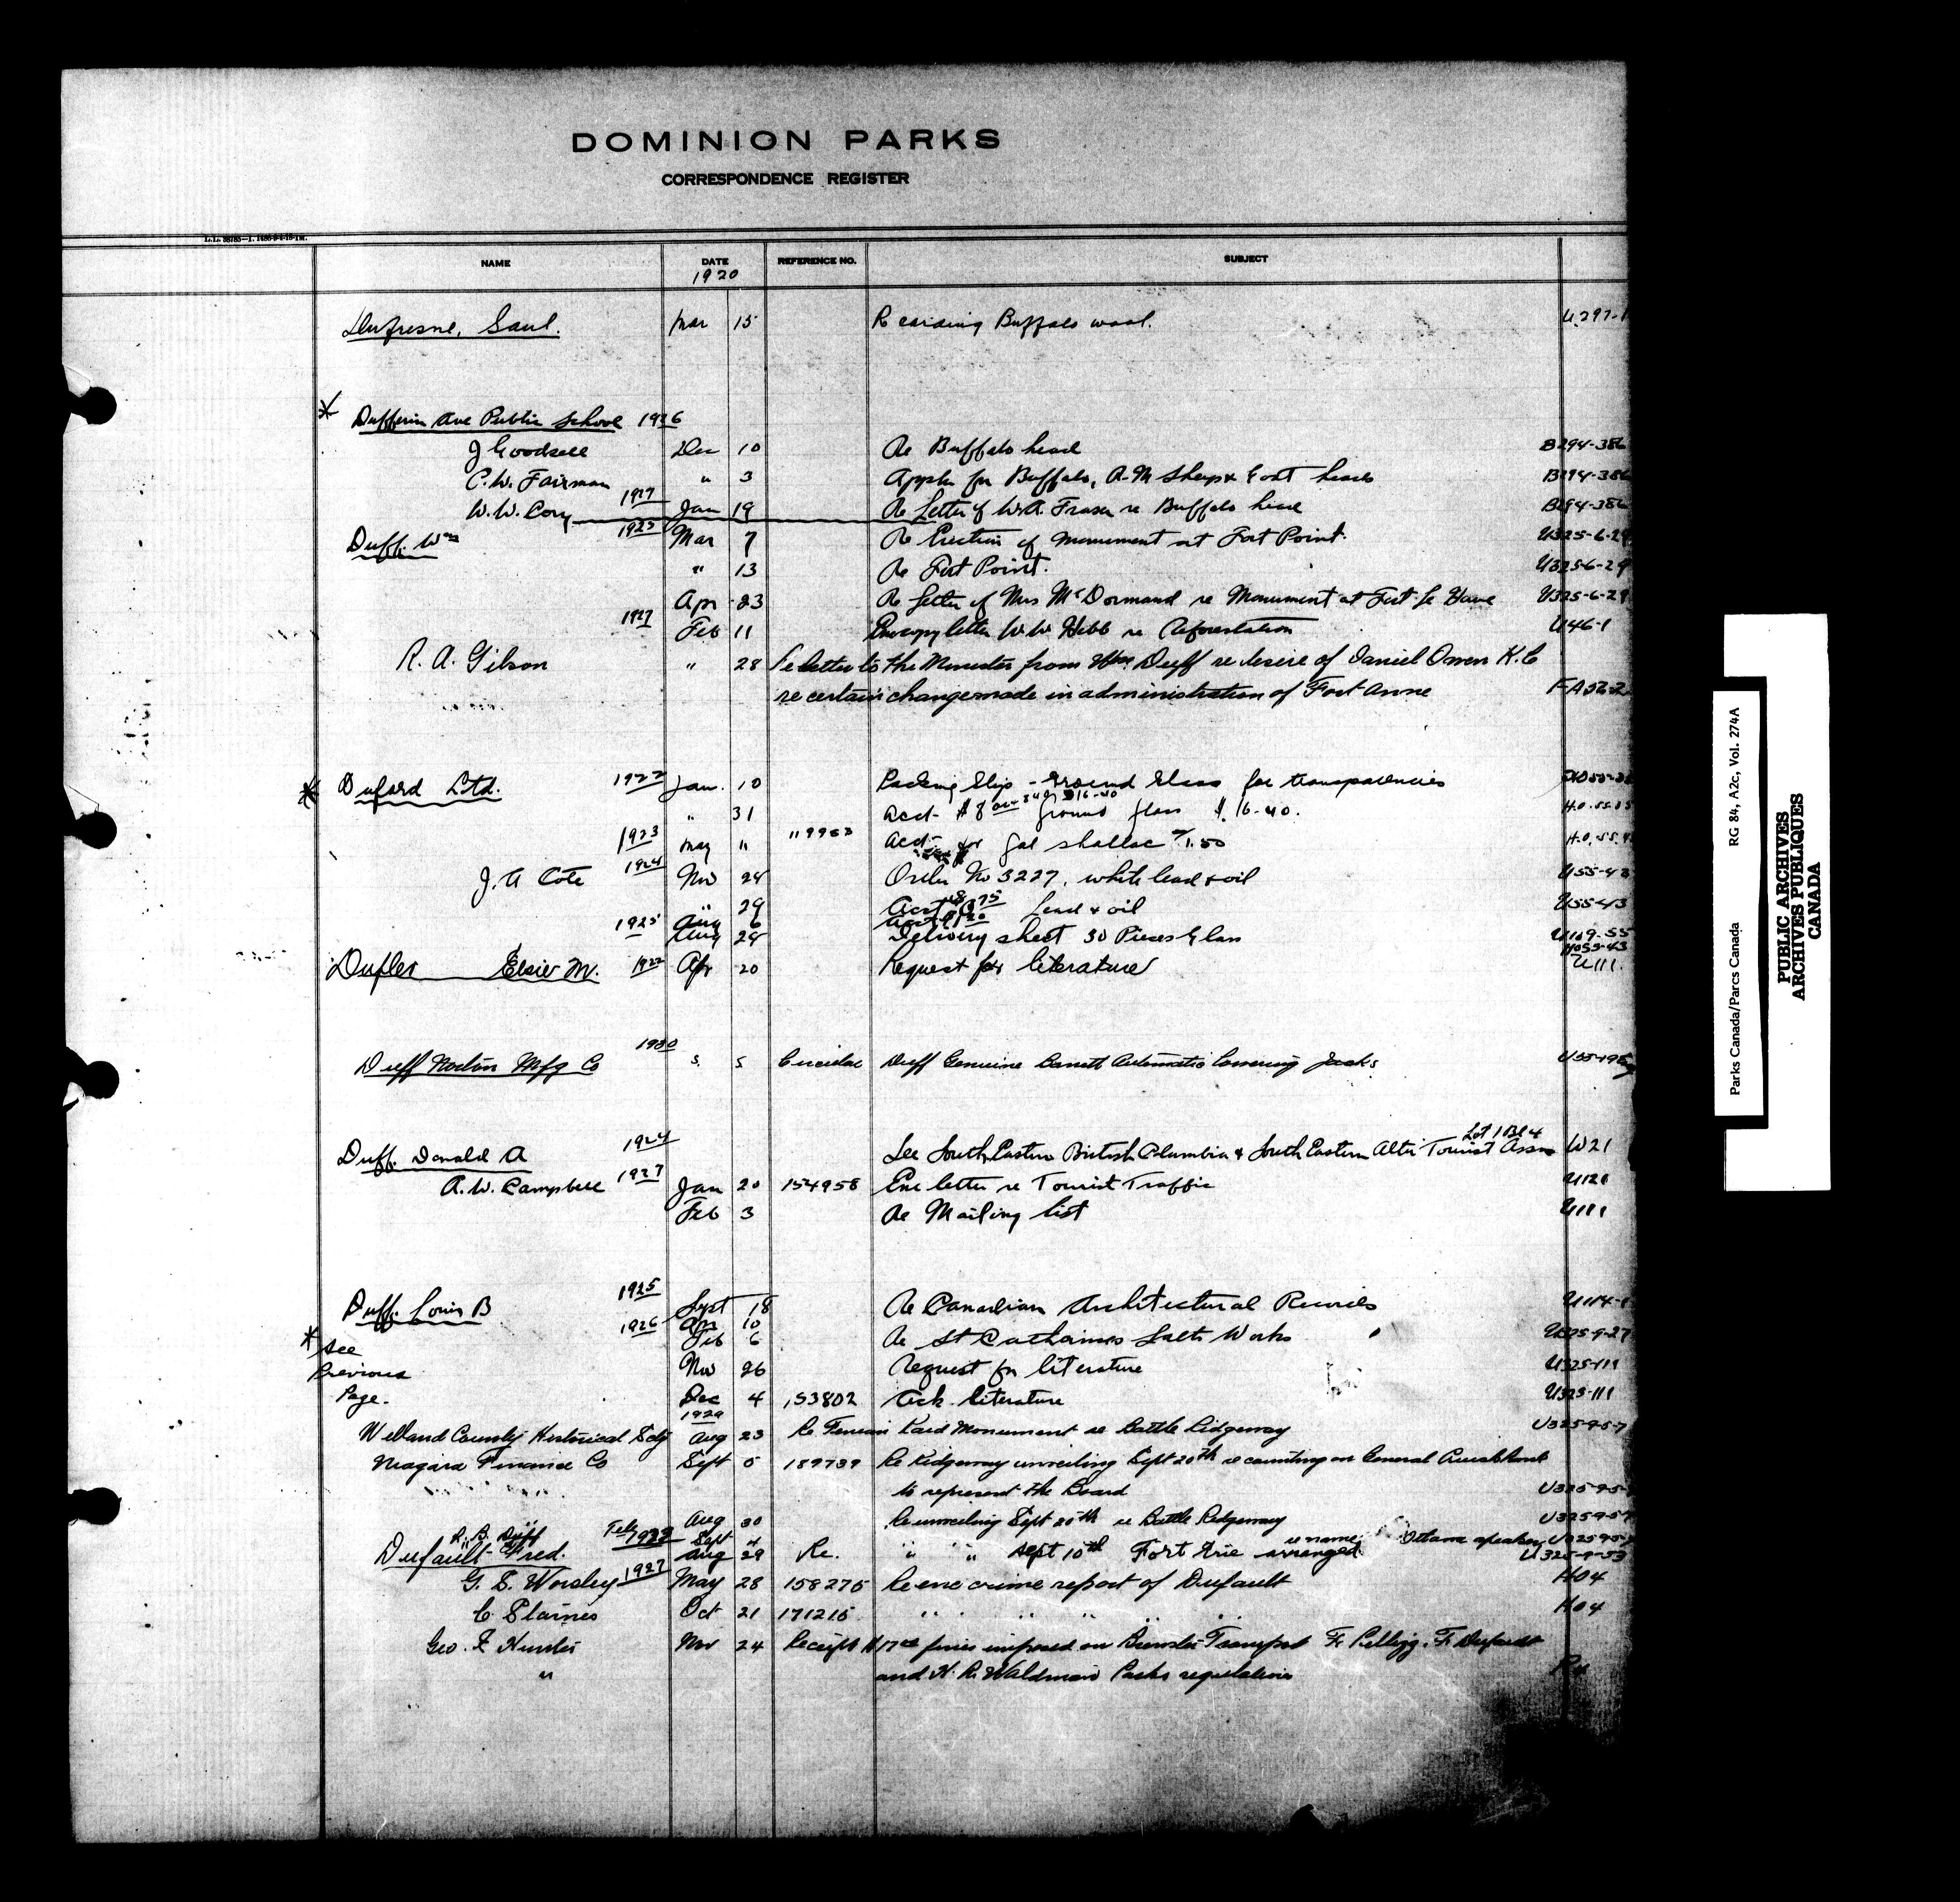 DOMINION PARKS
CORRESPONDENCE REGISTER
NAME DATE REFERENCE NO. SUBJECT
1920
Dufresne, Saul. Mar 15 Re carding Buffalo wool. U.297-1
* Dufferin Ave Public School 1926
J Goodsell Dec 10 Re Buffalo head B294-386
C.W. Fairman " 3 Appln for Buffalo, R-M Sheep & Goat heads B294-386
W.W. Cory 1927 Jan 19 Re Letter of W.A. Fraser re Buffalo head B294-386
Duff. Wm 1925 Mar 7 Re Erection of Monument at Fort Point. U325-6-29
" 13 Re Fort Point. U325-6-29
Apr 23 Re Letter of Mrs McDormand re Monument at Fort Le Have U325-6-29
1927 Feb 11 Enc copy letter W.W. Hebb re Reforestation U46-1
R. A. Gibson " 28 Re letter to the Minister from Wm. Duff re desire of Daniel Owen K.C
re certain change made in administration of Fort Anne
* Duford Ltd. 1922 Jan. 10 Packing Slip - Ground Glass for transparencies
" 31 Acct- ground glass $16.40.
1923 May " 119963 Acct- gal shellac
J. A Cote 1924 Nov 24 Order No 3227, white lead & oil U55-43
29 Acct Lead & oil U55-43
1925 Aug 6
Aug 24 Delivery sheet 30 Pieces Glass
Dufler Elsie M. 1922 Apr 20 Request for literature U111.
Duff Norton Mfg Co 1930 5 Circular Duff Genuine Barrett Automatic Lowering Jacks
Duff. Donald A 1924 See South Eastern British Columbia & South Eastern Alta Tourist Assn Lot 1 Bl 4 W21
A.W. Campbell 1927 Jan 20 154958 Enc letter re Tourist Traffic U121
Feb 3 Re Mailing list U111
Duff. Louis B 1925 Sept 18 Re Canadian Architectural Records U114-1
1926 Apr 10
Feb 6 Re St Catharines Salt Works U325-9-27
* See
Previous Nov 26 Request for literature U325-111
Page. Dec 4 153802 Ack. literature U325-111
1929
Welland County Historical Scty Aug 23 Re Fenian Raid Monument re Battle Ridgeway U325-9-5-7
Niagara Finance Co Sept 5 189739 Re Ridgeway unveiling Sept 20th re counting on General Cruikshank
to represent the Board
Aug 30 Re unveiling Sept 20th re Battle Ridgeway
R. B. Duff Sept 4 re name Ottawa speaker
Dufault Fred. Aug 29 Re. " " Sept 10th Fort Erie arranged
G. S. Worsley 1927 May 28 158275 Re enc crime report of Dufault H04
C. Staines Oct 21 171215 " " " " " H04
Geo. F. Hunter Nov 24 Receipt fines imposed on Brewster Transport F. Dufault
" and H. R. Waldman Parks regulations
PUBLIC ARCHIVES
ARCHIVES PUBLIQUES
CANADA
Parks Canada/Parcs Canada RG 84, A2c, Vol. 274A